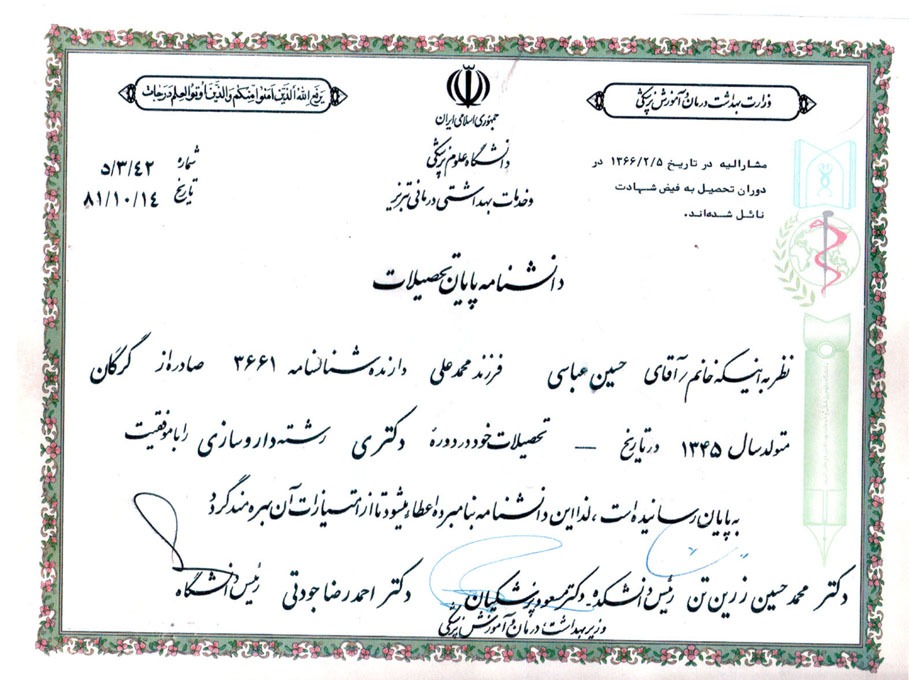 وزارت بهداشت درمان و آموزش پزشکی
یرفع الله الذین آمنوا منکم والذین اوتوا العلم درجات
جمهوری اسلامی ایران
دانشگاه علوم پزشکی
و خدمات بهداشتی درمانی تبریز
شماره ۵/۳/۴۲
تاریخ ۸۱/۱۰/۱۴
مشارالیه در تاریخ ۱۳۶۶/۲/۵ در
دوران تحصیل به فیض شهادت
نائل شده‌اند.
دانشنامه پایان تحصیلات
نظر به اینکه خانم / آقای حسین عباسی فرزند محمدعلی دارنده شناسنامه ۳۶۶۱ صادره از گرگان
متولد سال ۱۳۴۵ در تاریخ — تحصیلات خود در دوره دکتری رشته داروسازی را با موفقیت
به پایان رسانیده است، لذا این دانشنامه بنامبرده اعطاء میشود تا از امتیازات آن بهره مند گردد
دکتر محمدحسین زرین تن رئیس دانشکده دکتر مسعود پزشکیان دکتر احمدرضا جودتی رئیس دانشگاه
وزیر بهداشت درمان و آموزش پزشکی